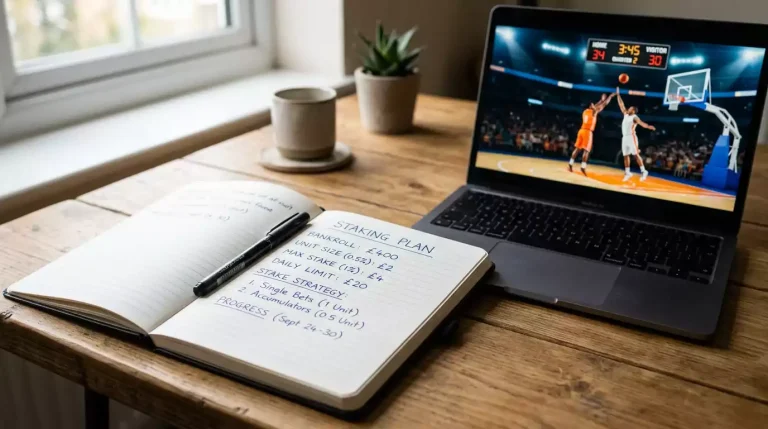 STAKING PLAN
BANKROLL: £400
UNIT SIZE (0.5%): £2
MAX STAKE (1%): £4
DAILY LIMIT: £20
STAKE STRATEGY:
1. Single Bets (1 Unit)
2 Accumulators (0.5 Unit)
PROGRESS (Sept 24-30)
HOME 3:45 VISITOR
34 QUARTER 2 30